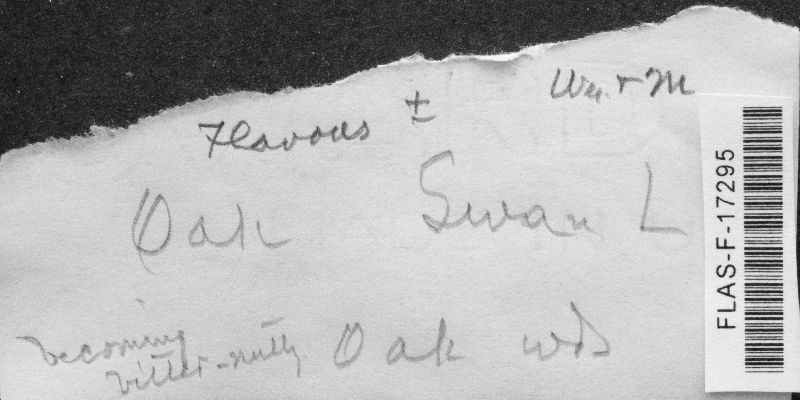 Flavous ± Wr. + M
Oak Swan L
becoming
bitter-nutty Oak wds
FLAS-F-17295